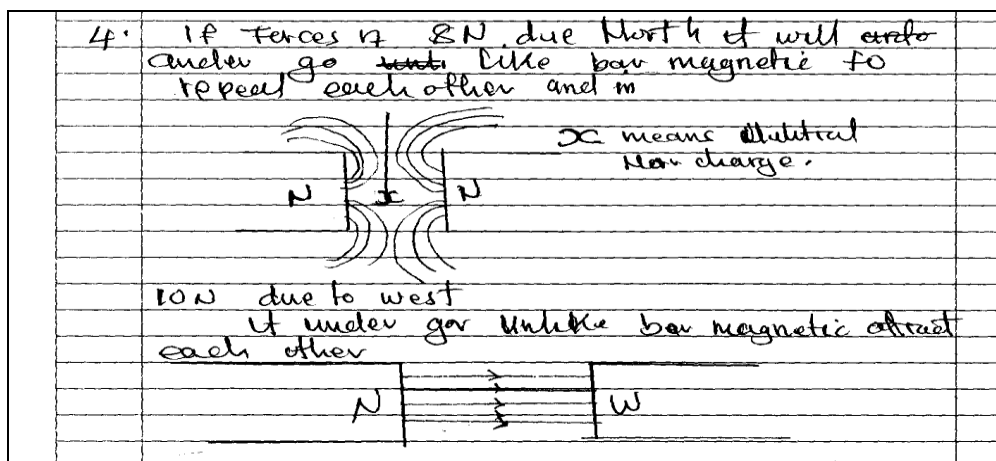 4. If Forces is 8N due North it will
under go Like bar magnetic to
repeal each other and m
x means
Non charge.
N x N
10N due to west
it under gor Unlike bar magnetic attract
each other
N W